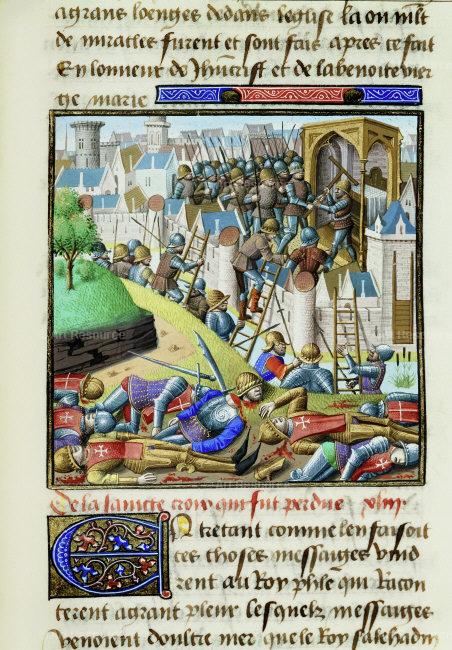 agrans loenges dedans leglise la ou mlt
de miracles furent et sont fais apres ce fait
En lonneur de Jhucrist et de la benoite vier
ge marie
De la saincte croix qui fut perdue
En tretant comme len faisoit
ces choses messages vind
rent au Roy phle qui Racon
terent agrant pleur lesquelz messages
venoient doultre mer que le Roy salehadin
Art Resource